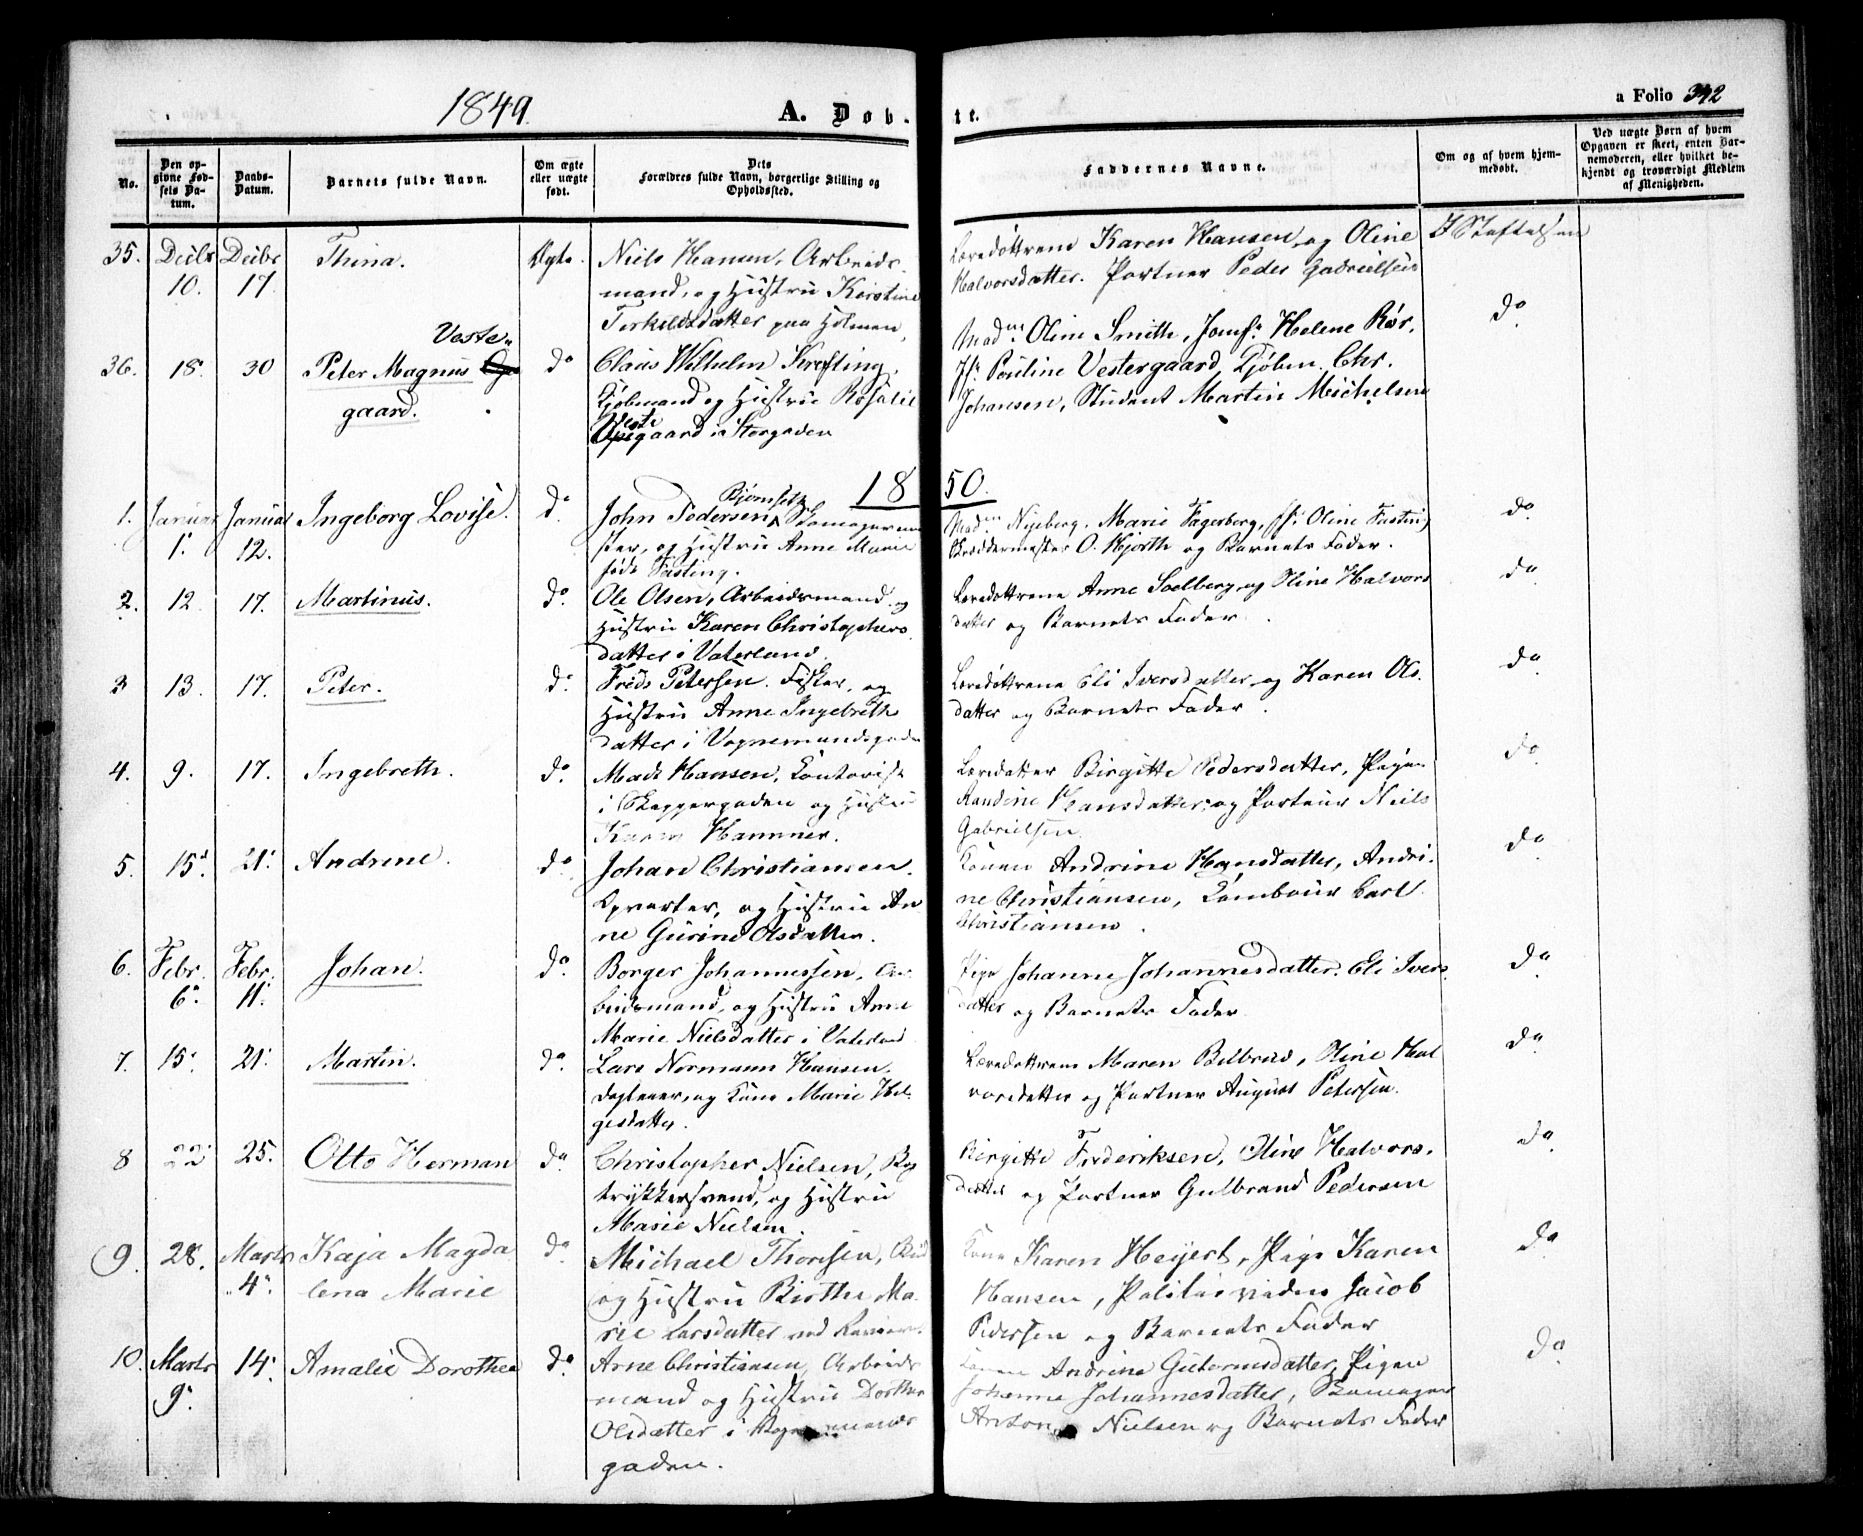 1849. A. Døb- te. a Folio 342
No. Den opgivne Fødsels Datum. Daabs-Datum. Barnets fulde Navn. Om ægte eller uægte født. Dets Forældres fulde Navn, borgerlige Stilling og Opholdssted. Faddernes Navne. Om og af hvem hjemmedøbt. Ved uægte Børn af hvem Opgaven er skeet, enten Barnemoderen, eller hvilket bekjendt og troværdigt Medlem af Menigheden.
35. Decbr 10. Decbr 17. Thina. Ægte. Niels Hansen, Arbeids-
mand, og Hustru Kirstine
Terkelsdatter paa Holmen,
Karen Hansen og Oline
Halvorsdatter. Portner Peder Gabrielsen
I Stiftelsen
36. 18. 30 Peter Magnus Veste-
gaard. do Claus Wilhelm Krefting,
Kjøbmand og Hustru Rosalie
Vestegaard i Storgaden
Madme Oline Smith, Jomf: Helene Rør,
Jf: Pouline Vestergaard, Kjøbm. Chr.
Johansen, Student Martin Michelsen
do
1850.
1. Januar 1. Januar 12. Ingeborg Lovise. do John Pedersen Bjørnseth,
ster, og Hustru Anne Marie
født Fasting.
Madm Nyeberg, Marie Fagerberg, Jf: Oline Fasting
O. Hjorth og Barnets Fader.
do
2. 12. 17. Martinus. do. Ole Olsen, Arbeidsmand og
Hustru Karen Christophers
datter i Vaterland.
Anne Soelberg og Oline Halvors
datter og Barnets Fader.
do
3 13. 17. Peter. do. Frids Petersen. Fisker, og
Hustru Anne Ingebreth
datter i Vognmandsgaden
Eli Iversdatter og Karen Ols
datter og Barnets Fader.
do
4. 9. 17. Ingebreth. do. Mads Hansen, Contorist
i Skippergaden og Hustru
Karen Hammer.
Birgitte Pedersdatter, Pigen
Randine Hansdatter og Portner Niels
Gabrielsen.
do
5. 15. 21. Andrine. do Johan Christiansen.
og Hustru An
ne Gurine Olsdatter.
Konen Andrine Hansdatter, Andri-
ne Christiansen, Tambour Carl
Christiansen.
do
6. Febr. 6. Febr. 11. Johan. do Borger Johannessen, Ar-
beidsmand, og Hustru Anne
Marie Nielsdatter i Vaterland
Pige Johanne Johannesdatter. Eli Ivers
datter og Barnets Fader.
do
7. 15. 21. Martin. do. Lars Normann Hansen.
og Kone Marie Hel-
gesdatter.
Maren Oline Hal
vorsdatter og Portner August Petersen.
do
8 22 25. Otto Herman do Christopher Nielsen, Bog
trykkersvend, og Hustru
Marie Nielsen.
Birgitte Frederiksen, Oline Halvors-
datter og Portner Gulbrand Pedersen
do
9. 28. Marts 4. Kaja Magda
lena Marie do Michael Thoresen, Bud
og Hustru Birthe Ma-
rie Larsdatter ved
Kone Karen Heyert, Pige Karen
Hansen, Jacob
Pedersen og Barnets Fader
do
10. Marts 9. 14. Amalie Dorothea do. Arne Christiansen, Arbeids
mand og Hustru Dorthea
Olsdatter i Vognmands
gaden.
Andrine Gutormsdatter, Pigen
Johanne Johannesdatter,
Anton Nielsen og Barnets Fader
do